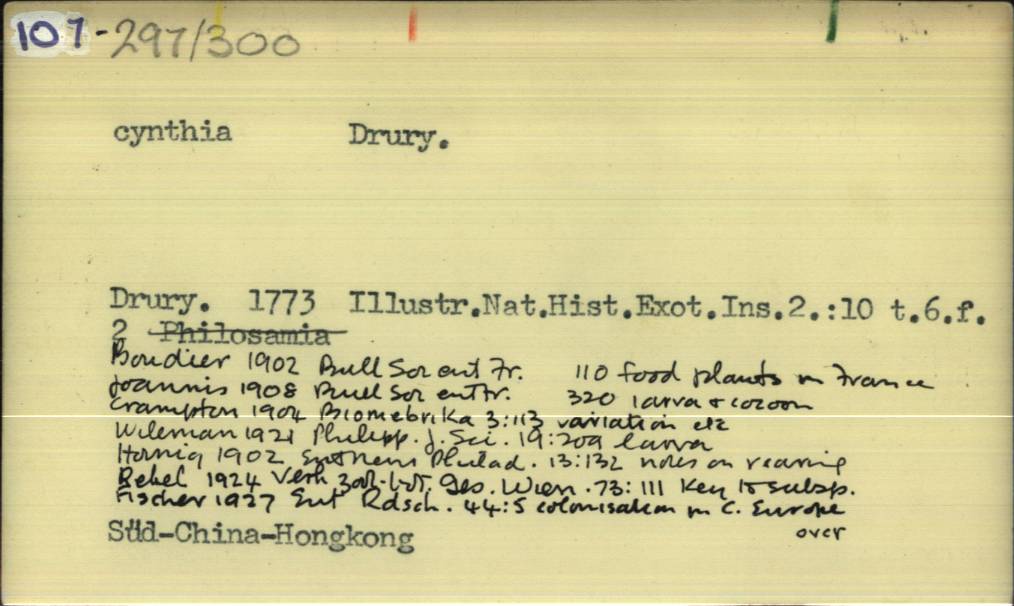 107-297/300
cynthia Drury.
Drury. 1773 Illustr.Nat.Hist.Exot.Ins.2.:10 t.6.f.
2 Philosamia
Boudier 1902 Bull Soc ent Fr. 110 food plants in France
Joannis 1908 Bull Soc ent Fr. 320 larva & cocoon
Crampton 1904 Biomebrika 3:113 variation etc
Wileman 1921 Philipp. J. Sci. 19:209 larva
Hornig 1902 Ent News Philad. 13:132 notes on rearing
Rebel 1924 Verh zool-bot. Ges. Wien. 73:111 Key to subsp.
Fischer 1927 Ent Rdsch. 44:5 colonisation in C. Europe
Süd-China-Hongkong over